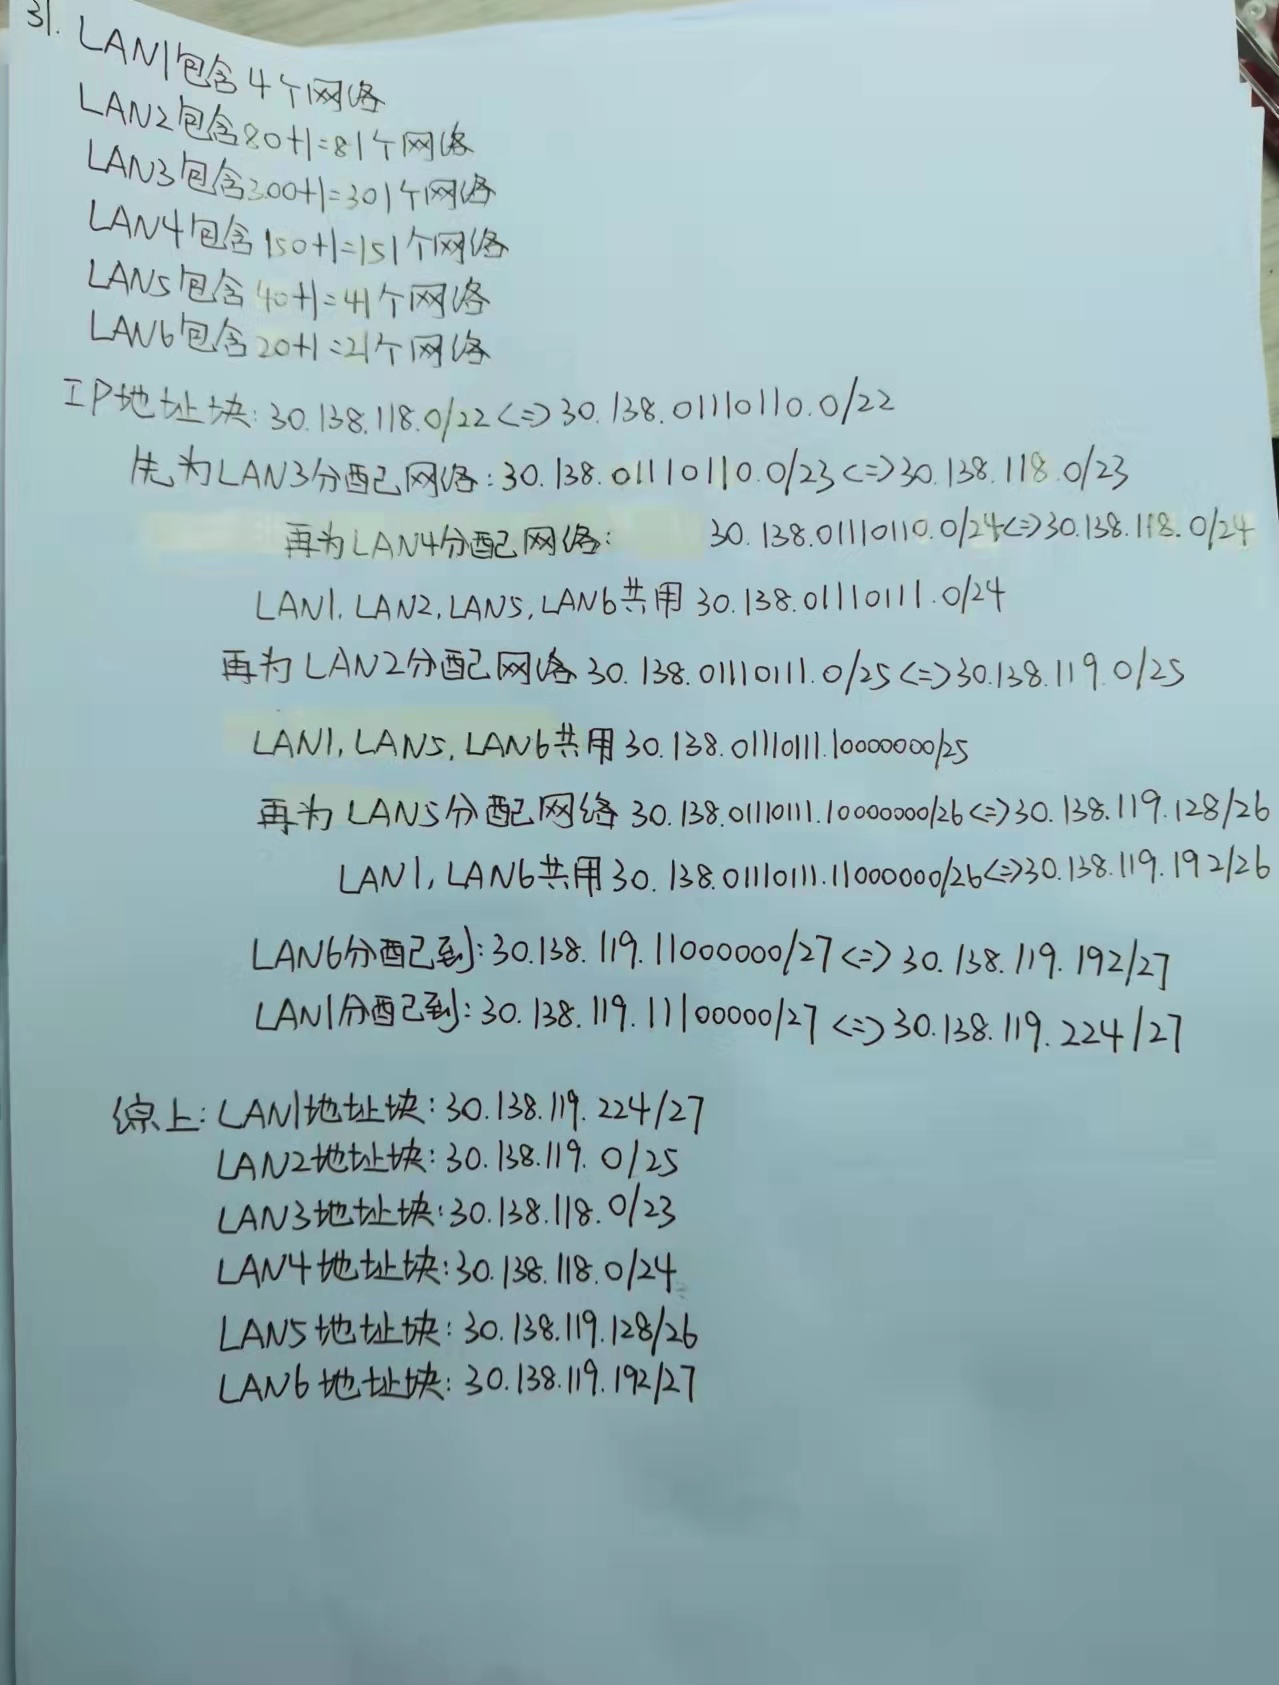 31. LAN1包含4个网络
LAN2包含80+1=81个网络
LAN3包含300+1=301个网络
LAN4包含150+1=151个网络
LAN5包含40+1=41个网络
LAN6包含20+1=21个网络
IP地址块:30.138.118.0/22<=>30.138.01110110.0/22
先为LAN3分配网络:30.138.01110110.0/23<=>30.138.118.0/23
再为LAN4分配网络: 30.138.01110110.0/24<=>30.138.118.0/24
LAN1.LAN2,LAN5,LAN6共用30.138.01110111.0/24
再为LAN2分配网络30.138.01110111.0/25<=>30.138.119.0/25
LAN1,LAN5,LAN6共用30.138.01110111.10000000/25
再为LAN5分配网络30.138.01110111.10000000/26<=>30.138.119.128/26
LAN1,LAN6共用30.138.01110111.11000000/26<=>30.138.119.192/26
LAN6分配到:30.138.119.11000000/27<=>30.138.119.192/27
LAN1分配到:30.138.119.11100000/27<=>30.138.119.224/27
综上:LAN1地址块:30.138.119.224/27
LAN2地址块:30.138.119.0/25
LAN3地址块:30.138.118.0/23
LAN4地址块:30.138.118.0/24
LAN5地址块:30.138.119.128/26
LAN6地址块:30.138.119.192/27